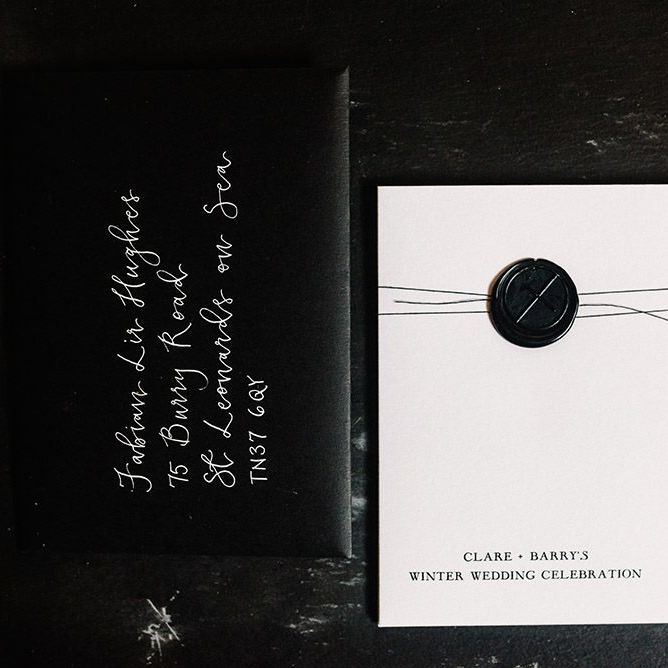 Fabian Lir Hughes
75 Burry Road
St Leonards on Sea
TN37 6QY
CLARE + BARRY'S
WINTER WEDDING CELEBRATION